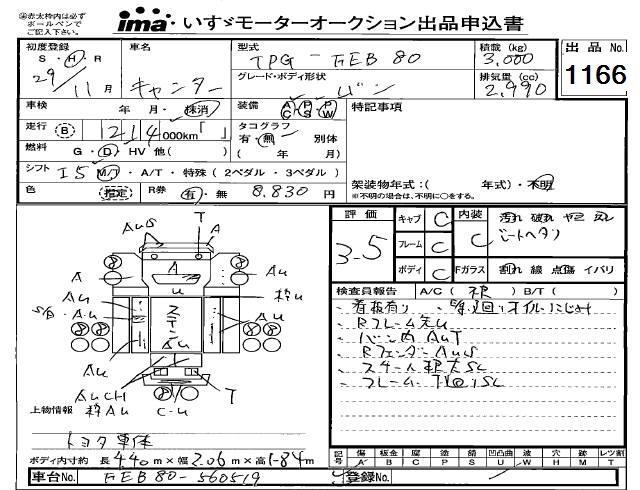 ㊟赤太枠内は必ずボールペンでご記入下さい。
ima いすゞモーターオークション出品申込書
初度登録 S・H・R 29年 11月
車名 キャンター
型式 TPG-FEB80
グレード・ボディ形状 バン
積載 (kg) 3,000
排気量 (cc) 2,990
出品No. 1166
車検 年 月・抹消
装備 AC PS PW
特記事項
走行 (B) 214000km「 」
タコグラフ 有・無 別体 ( 年 月)
燃料 G・D・HV 他( )
シフト I5 M/T・A/T・特殊(2ペダル・3ペダル)
架装物年式:( 年式)・不明
※不明の場合は、不明に○をする。
色 (指定) R券 有・無 8,830円
評価 3.5
キャブ C
フレーム C
ボディ C
内装 C
汚れ 破れ ヤニ
シートヘタリ
Fガラス 割れ 線 点傷 イバリ
AuS T A
A Au A Au
Au u 枠u
Au ステン Au
Au Au
AuCH T
上物情報 枠Au C-u
トヨタ車体
検査員報告 A/C( ) B/T( )
・看板有り
・Rフレーム先u
・バン内AuT
・RフェンダーAuS
記号 傷 板金 腐 塗 錆 凹凸曲 波 穴 歪 レツ割
A B C P S U W H M T
ボディ内寸約 長4.40m×幅2.06m×高1.84m
車台No. FEB80-560519
登録No.